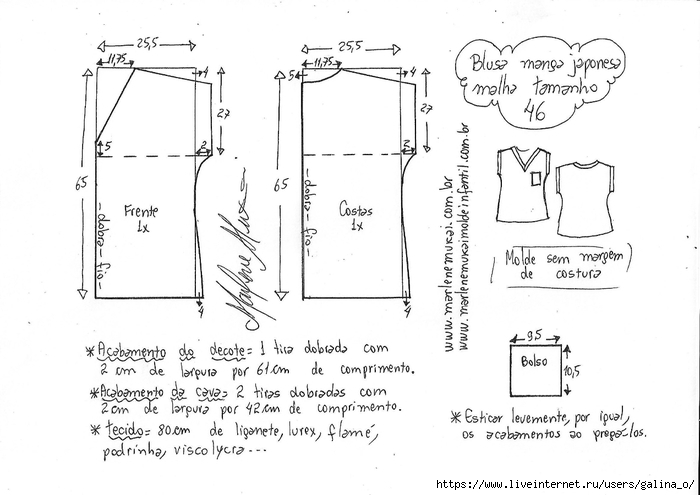 25,5
11,75
4
27
5
2
65
Frente
1x
-dobra-fio-
4
25,5
11,75
5
4
27
2
65
Costas
1x
-dobra-fio-
4
Blusa manga japonesa
malha tamanho
46
www.marlenemukai.com.br
www.marlenemukaimoldeinfantil.com.br
Molde sem margem
de costura
9,5
Bolso
10,5
* Acabamento do decote= 1 tira dobrada com
2 cm de largura por 61.cm de comprimento.
* Acabamento da cava= 2 tiras dobradas com
2cm de largura por 42.cm de comprimento.
* tecido= 80.cm de liganete, lurex, flamê,
podrinha, viscolycra ---
* Esticar levemente, por igual,
os acabamentos ao pregá-los.
https://www.liveinternet.ru/users/galina_o/